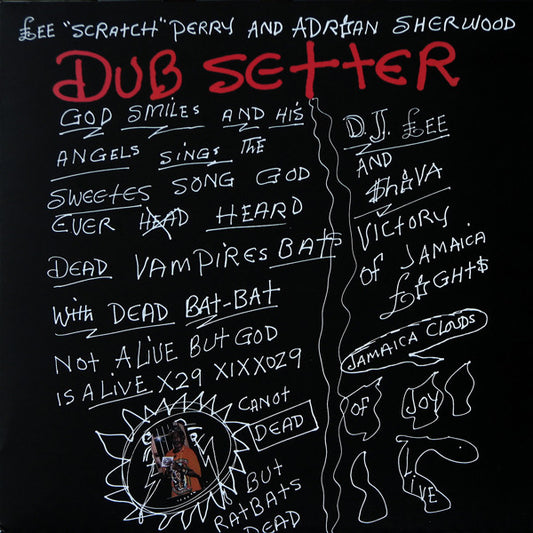 £EE "SCRAtCH" PERRY AND ADRIAN SHERWOOD
DUB SEttER
GOD SMILES AND HIS
ANGELS SINGS THE
SWEETES SONG GOD
EVER HEAD HEARD
DEAD VAMPIRES BATS
With DEAD BAt-BAt
Not ALIVE BUt GOD
IS ALIVE X29 XIXXO29
CANOt
DEAD
BUt
RAtBAtS
DEAD
D.J. £EE
AND
$hiVA
VICTORY
OF JAMAICA
£IGHt$
JAMAICA CLOUDS
OF JOY
LIVE